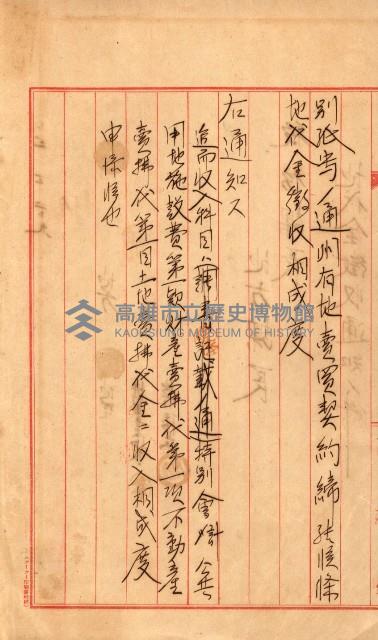 別紙写ノ通州有地賣買契約締結候條
地代金徴収相成度
右通知ス
追而収入科目ハ調書記載ノ通特別會計公共
用地施設費第一款財産賣拂代第一項不動産
賣拂代第一目土地賣拂代金ニ収入相成度
申添候也
高雄市立歷史博物館
KAOHSIUNG MUSEUM OF HISTORY